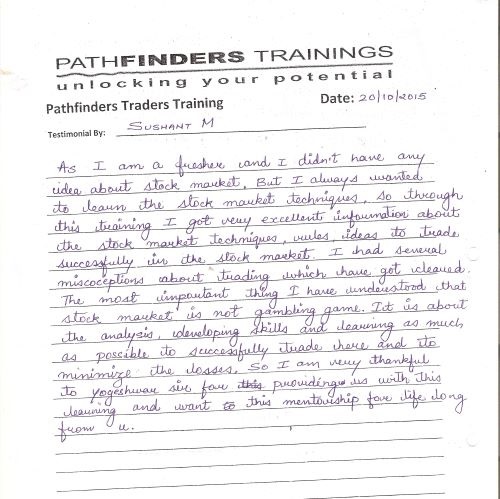 PATHFINDERS TRAININGS
unlocking your potential
Pathfinders Traders Training
Date: 20/10/2015
Testimonial By: SUSHANT M
As I am a fresher and I didn't have any
idea about stock market. But I always wanted
to learn the stock market techniques. So through
this training I got very excellent information about
the stock market techniques, rules, ideas to trade
successfully in the stock market. I had several
miscoceptions about trading which have got cleared.
The most important thing I have understood that
stock market is not gambling game. It is about
the analysis, developing skills and learning as much
as possible to successfully trade here and to
minimize the losses. So I am very thankful
to yogeshwar sir for this providing us with this
learning and want to this mentorship for life long
from u.